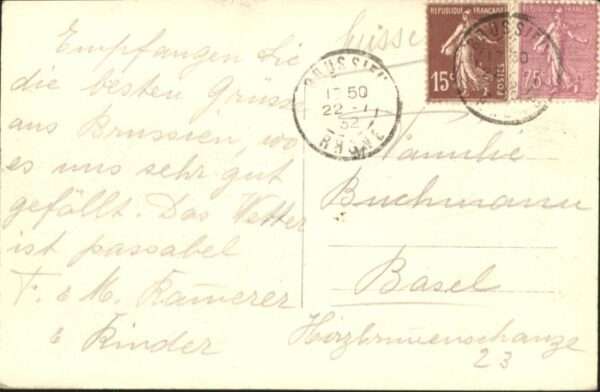 Empfangen Sie
die besten Grüsse
aus Brussieu, wo
es uns sehr gut
gefällt. Das Wetter
ist passabel
F. & M. Kamerer
& Kinder
Suisse
REPUBLIQUE FRANÇAISE
15c
POSTES
REPUBLIQUE FRANÇAISE
75c
BRUSSIEU
17 50
22 - 7
32
RHONE
BRUSSIEU
Familie
Buchmann
Basel
Hirzbrunnenschanze
23